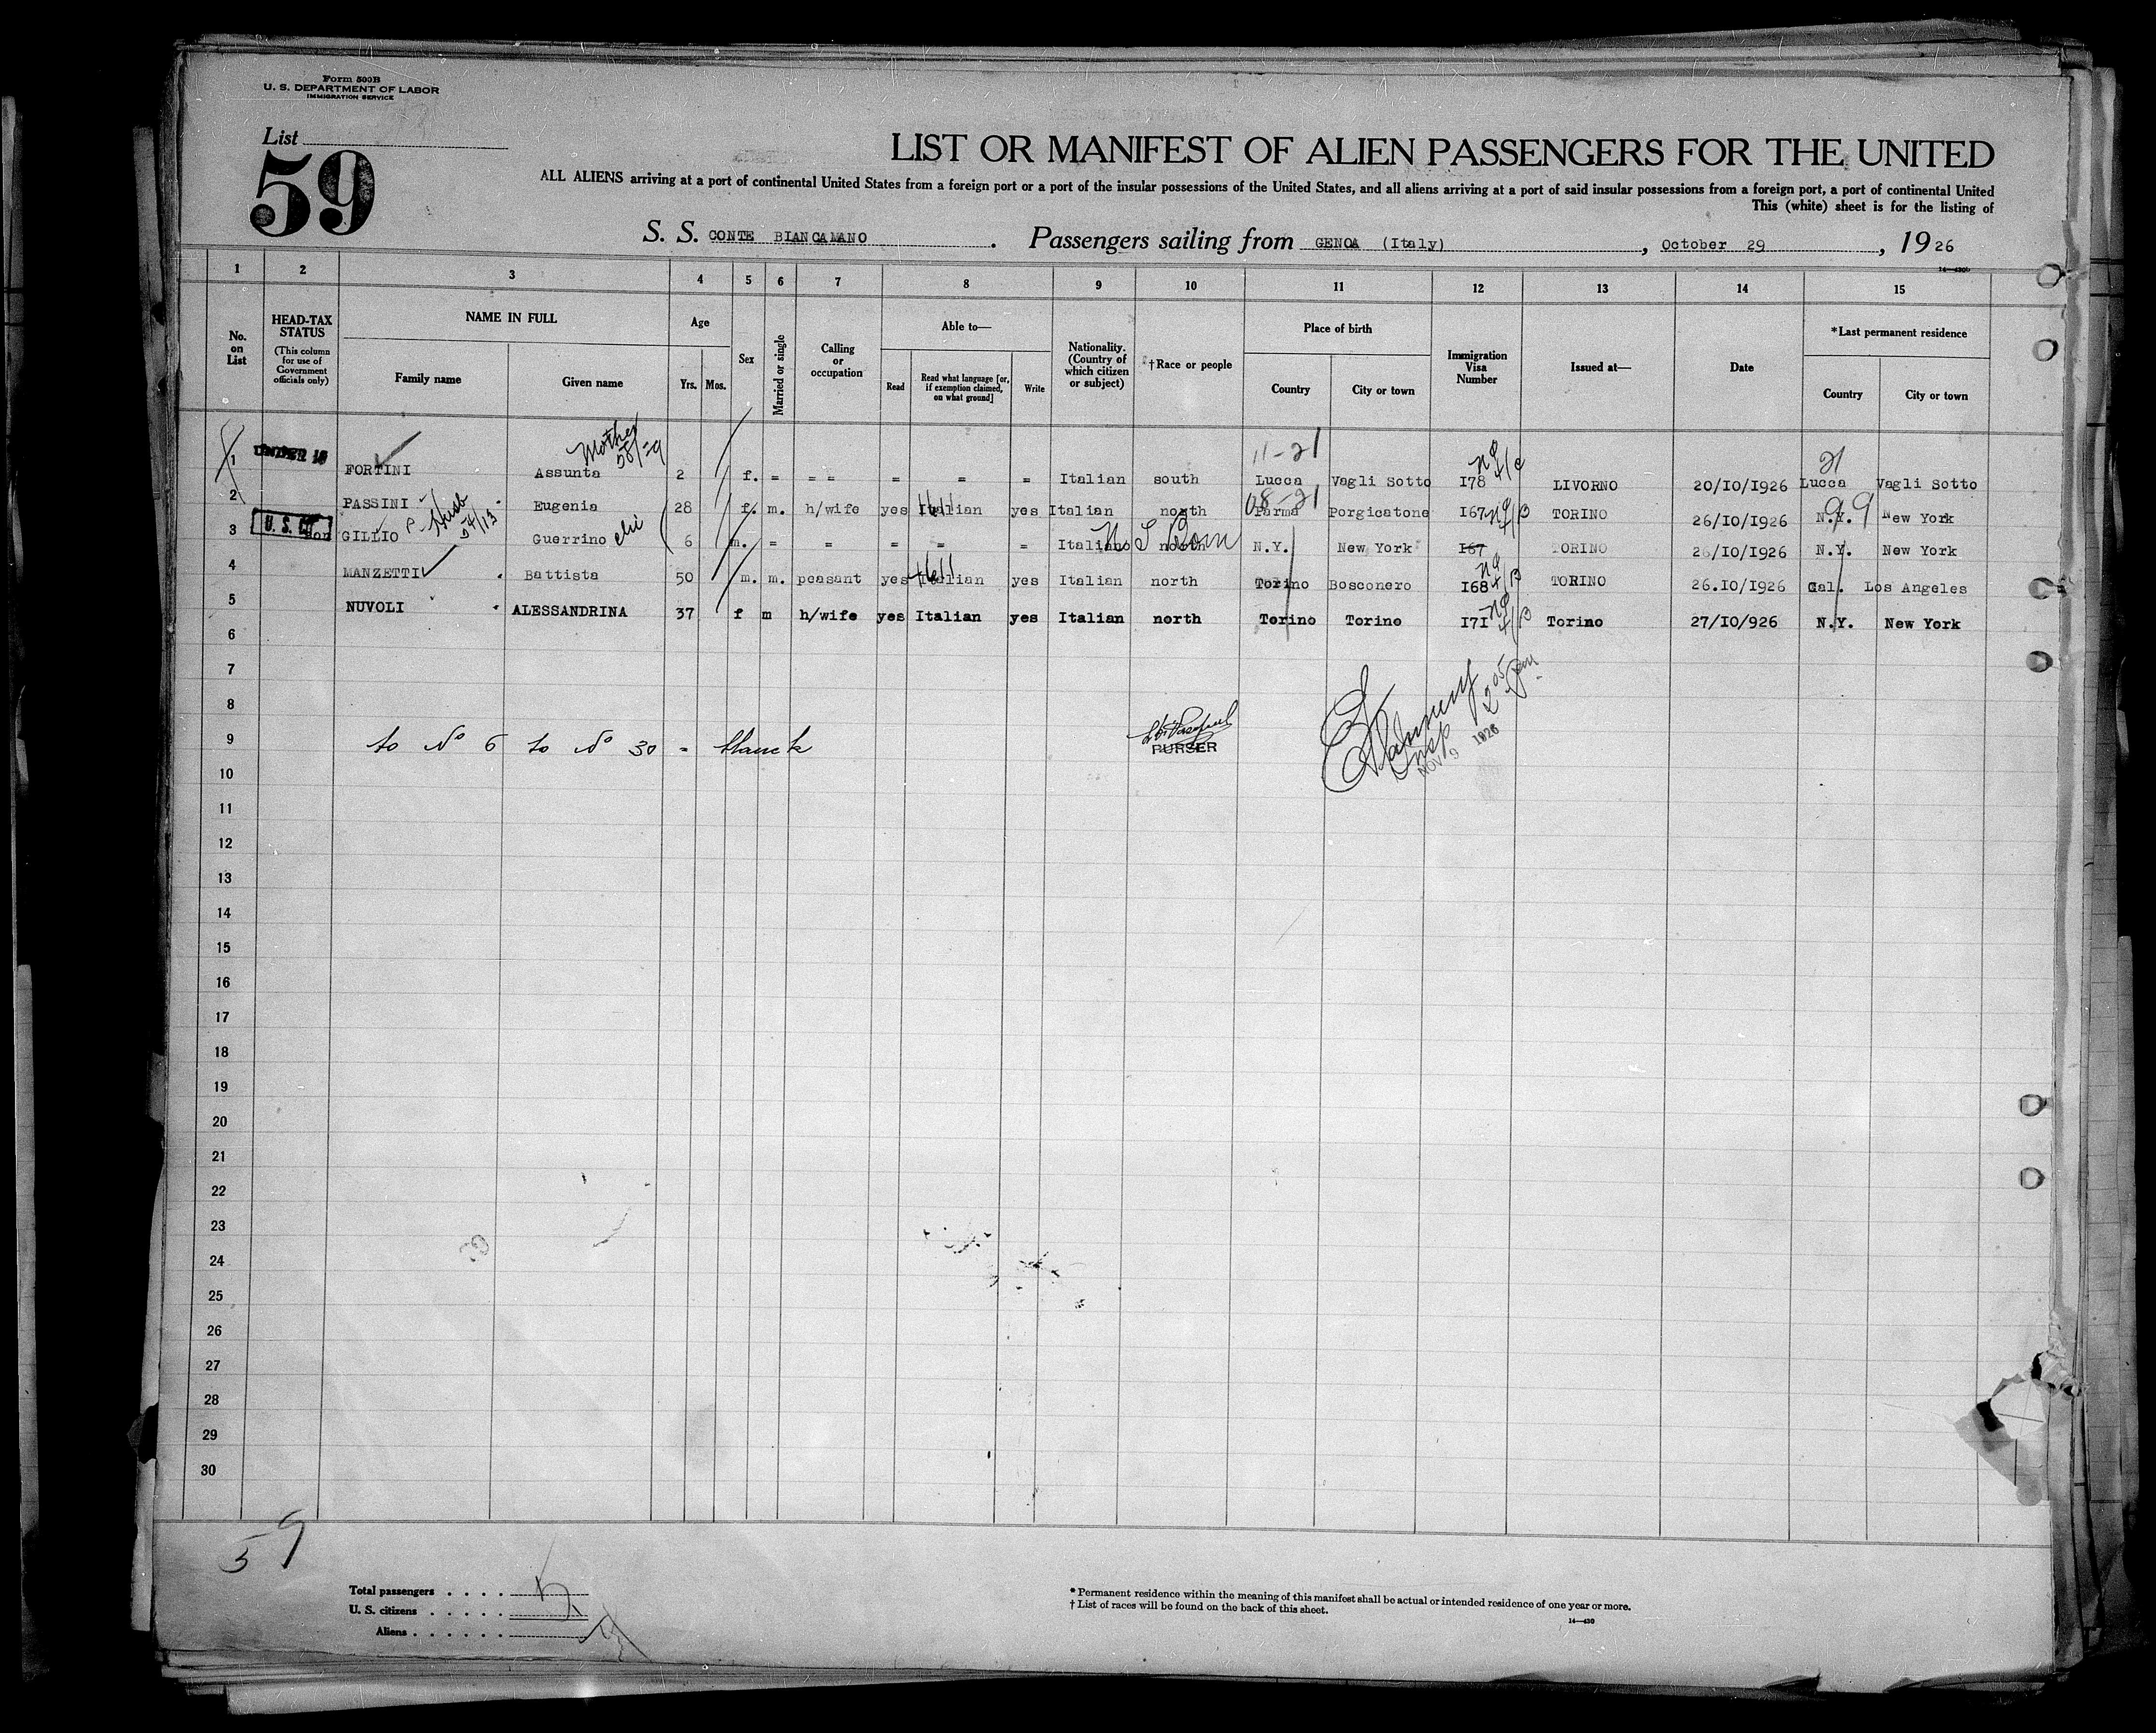 Form 500B
U. S. DEPARTMENT OF LABOR
IMMIGRATION SERVICE
List
59
LIST OR MANIFEST OF ALIEN PASSENGERS FOR THE UNITED
ALL ALIENS arriving at a port of continental United States from a foreign port or a port of the insular possessions of the United States, and all aliens arriving at a port of said insular possessions from a foreign port, a port of continental United
This (white) sheet is for the listing of
S. S. CONTE BIANCAMANO . Passengers sailing from GENOA (Italy) , October 29 , 1926
1 2 3 4 5 6 7 8 9 10 11 12 13 14 15
No. on List
HEAD-TAX STATUS
(This column for use of Government officials only)
NAME IN FULL
Family name Given name
Age
Yrs. Mos.
Sex
Married or single
Calling or occupation
Able to—
Read Read what language [or, if exemption claimed, on what ground] Write
Nationality. (Country of which citizen or subject)
†Race or people
Place of birth
Country City or town
Immigration Visa Number
Issued at—
Date
*Last permanent residence
Country City or town
Mother 58/29
11-21
21
1 UNDER 16 FORTINI Assunta 2 f. = = = = = = Italian south Lucca Vagli Sotto 178 LIVORNO 20/10/1926 Lucca Vagli Sotto
2 PASSINI Husb 54/13 Eugenia 28 f. m. h/wife yes Italian yes Italian north 08-21 Parma Porgicatone 167 TORINO 26/10/1926 N.Y. 99 New York
3 U. S. GILLIO Guerrino 6 m. = = = = = Italiano north U S Born N.Y. New York 167 TORINO 26/10/1926 N.Y. New York
4 MANZETTI Battista 50 m. m. peasant yes Italian yes Italian north Torino Bosconero 168 TORINO 26.10/1926 Cal. Los Angeles
5 NUVOLI ALESSANDRINA 37 f m h/wife yes Italian yes Italian north Torino Torino 171 Torino 27/10/926 N.Y. New York
6
7
8
9 to No 6 to No 30 = blanck
PURSER
Insp
NOV 9 1926
10
11
12
13
14
15
16
17
18
19
20
21
22
23
24
25
26
27
28
29
30
59
Total passengers . . . .
U. S. citizens . . . . .
Aliens . . . . . .
* Permanent residence within the meaning of this manifest shall be actual or intended residence of one year or more.
† List of races will be found on the back of this sheet.
14—430